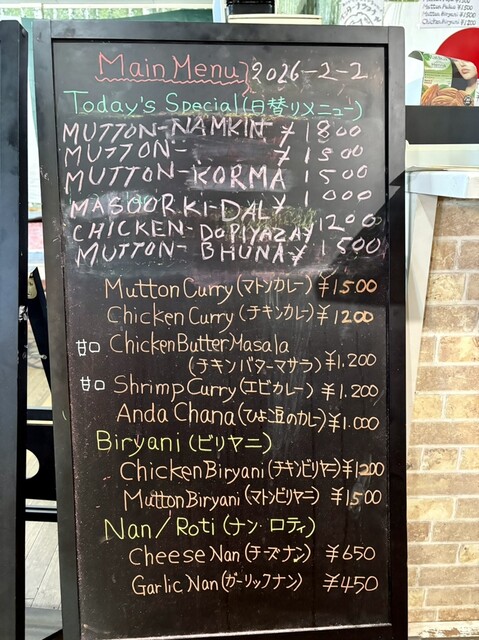 Mutton Pulao ¥1500
Mutton Biryani ¥1500
Chicken Biryani ¥1200
Main Menu 2026-2-2
Today's Special (日替りメニュー)
MUTTON-NAMKIN ¥1800
MUTTON-
MUTTON-KORMA 1500
MASOOR KI-DAL ¥1000
CHICKEN-DOPIYAZA ¥1200
MUTTON-BHUNA ¥1500
Mutton Curry (マトンカレー) ¥1500
Chicken Curry (チキンカレー) ¥1200
甘口 Chicken Butter Masala
(チキンバターマサラ) ¥1.200
甘口 Shrimp Curry (エビカレー) ¥1.200
Anda Chana (ひよこ豆のカレー) ¥1.000
Biryani (ビリヤニ)
Chicken Biryani (チキンビリヤニ) ¥1200
Mutton Biryani (マトンビリヤニ) ¥1500
Nan/Roti (ナン・ロティ)
Cheese Nan (チーズナン) ¥650
Garlic Nan (ガーリックナン) ¥450